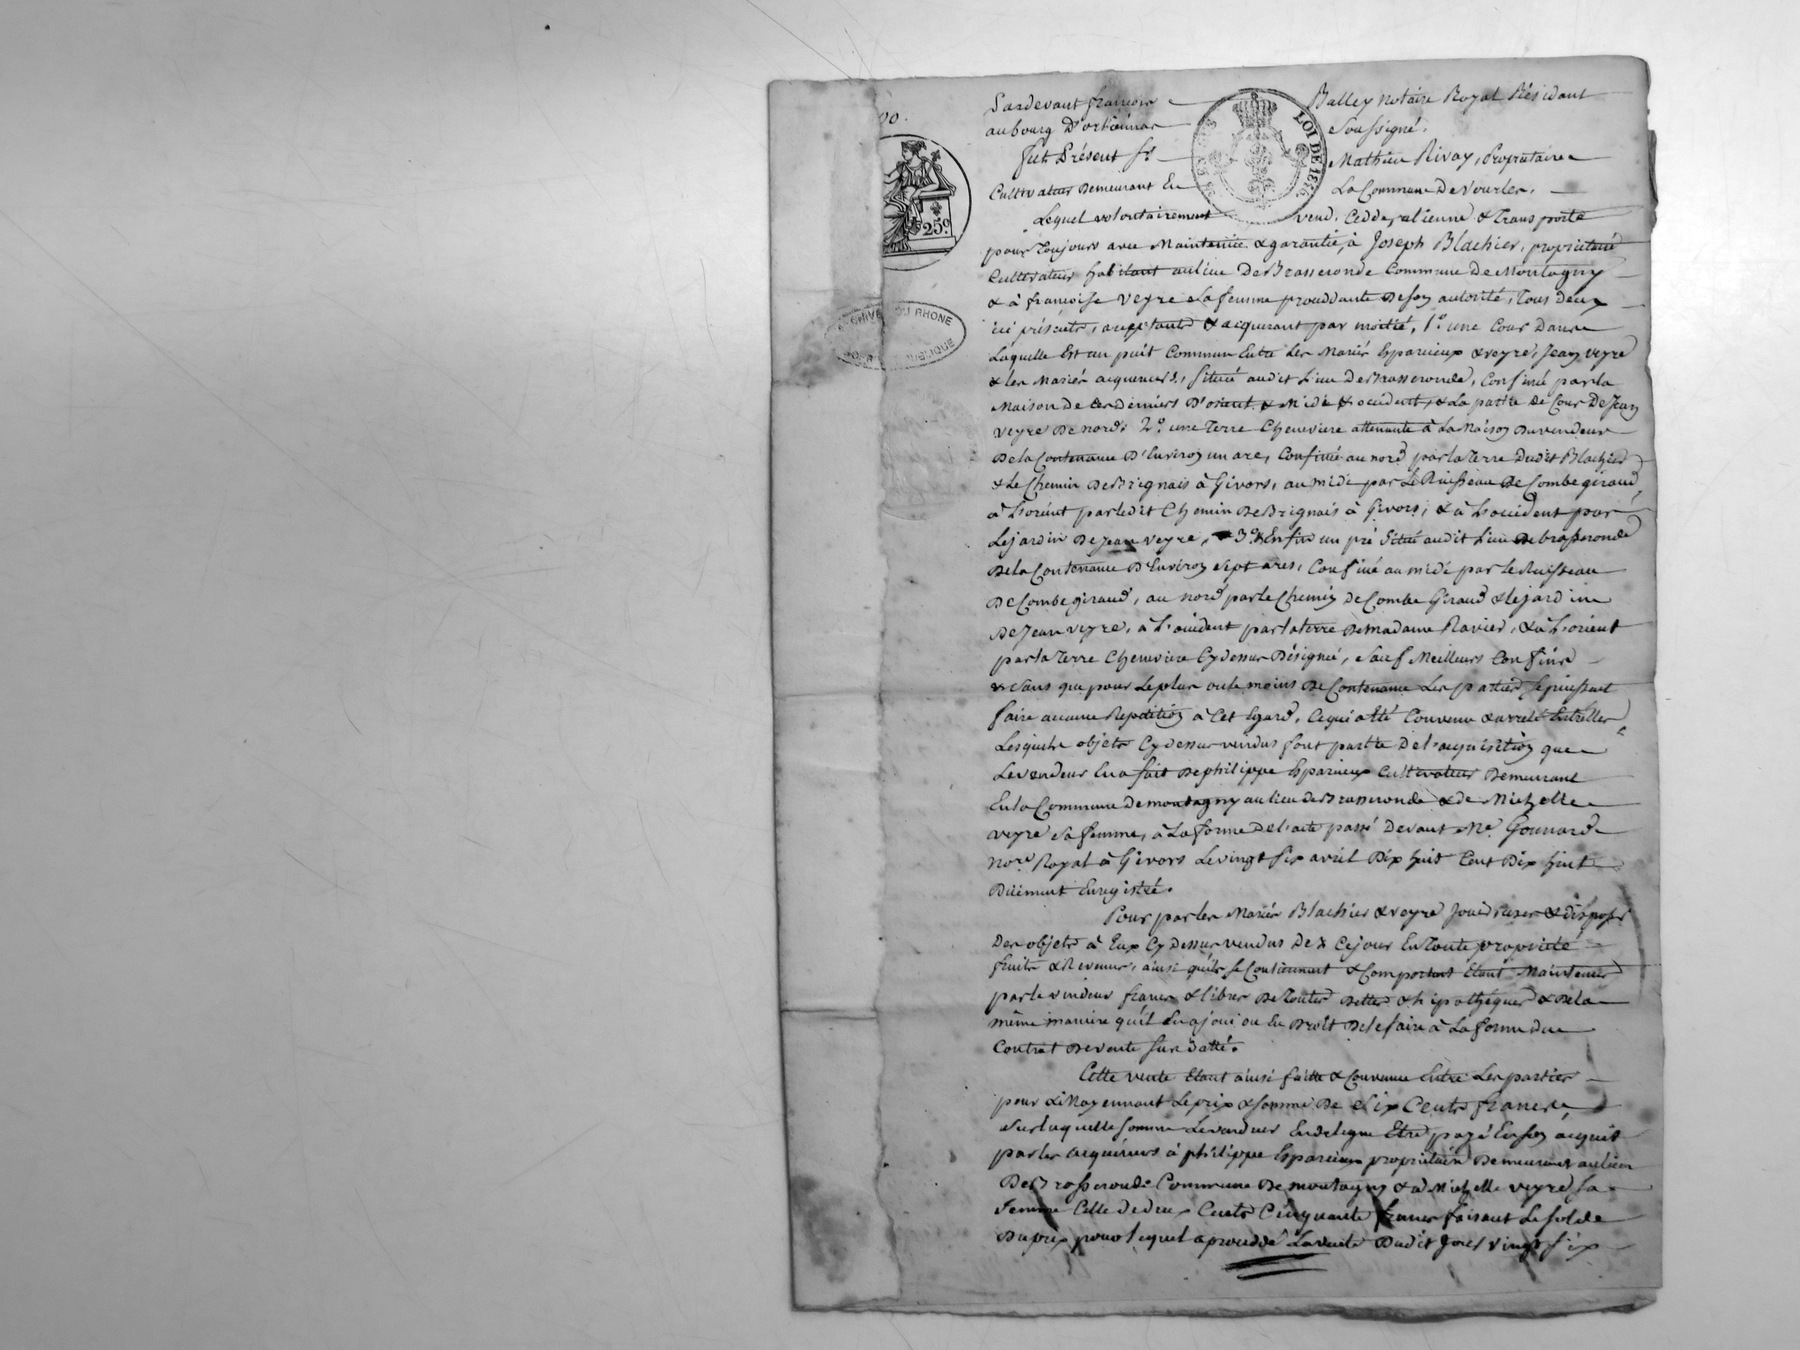 Pardevant françois Balley notaire Royal Résidant
au bourg D'orliénas soussigné.
fut Présent sr Mathieu Rivay, Propriétaire
Cultivateur Demeurant En La Commune De Vourles.
Lequel volontairement vend, Cedde, alienne & Transporte
pour Toujours avec Maintenue & garantie, à Joseph Blachier, propriétaire
Cultivateur habitant au lieu De Brasseronde Commune De Montagny
& à françoise Veyre sa femme procddante De son autorité, Tous deux
ici présents, acceptants & acquerant par moitié, 1.º une Cour Dans
Laquelle Est un puit Commun Entre Les Mariés Esparcieux & veyre, Jean veyre
& les Mariés acquereurs, situé audit Lieu De Brasseronde, Confiné par la
Maison de ces derniers D'orient & Midi & occident, & La partie de Cour De Jean
veyre De nord; 2.º une Terre Cheneviere attenante à La Maison Du vendeur
De la Contenance D'Environ un are, Confiné au nord par la Terre Dudit Blachier
& Le Chemin De Brignais à Givors, au midi par Le Ruisseau De Combe giraud,
à L'orient par ledit Chemin De Brignais à Givors; & à L'occident par
Le jardin De Jean veyre, 3.º & Enfin un pré Situé audit Lieu De brasseronde
De la Contenance D'Environ sept ares, Confiné au midi par Le Ruisseau
De Combe giraud, au nord par le Chemin de Combe Giraud & le jardin
De Jean veyre, à L'occident par la terre De madame Ravier, & à L'orient
par la Terre Cheneviere Cydessus Désignée, sauf Meilleurs Confins
& sans que pour Le plus ou le moins De Contenance Les parties se puissent
faire aucune Repetition à Cet Egard, Ce qui a Eté Convenu & arreté Entr'elles
Lesquels objets Cydessus vendus font partie De l'acquisition que
Le vendeur En a fait De philippe Esparcieux Cultivateur Demeurant
En la Commune de montagny au lieu de Brasseronde & de Michelle
veyre sa femme, à La forme De l'acte passé Devant Me. Gonnard
Nore. Royal à Givors Le vingt six avril Dix huit Cent Dix huit
Dûement Enregistré.
Pour par les Mariés Blachier & veyre Jouir, user & disposer
Des objets à Eux Cydessus vendus De Ce jour En Toute propriété
fruits & Revenus, ainsi qu'ils se Contiennent & Comportent Etant Maintenus
par le vendeur francs & libres De Toutes Dettes & hipothéques & De la
même maniere qu'il En a joui ou Eu Droit De le faire à La forme du
Contrat De vente sus Datté.
Cette vente Etant ainsi faitte & Convenue Entre Les parties
pour & Moyennant Le prix & somme De Six Cents francs,
sur laquelle somme Le vendeur En delegue Etre payé En son acquit
par les acquéreurs à philippe Esparcieux propriétaire Demeurant au lieu
De Brasseronde Commune De montagny & à Michelle veyre sa
femme Celle de deux Cents Cinquante francs faisant Le solde
Du prix pour lequel a procédé La vente Dudit Jour vingt six
25c
LOI DE 1816
ARCHIVES DU RHONE